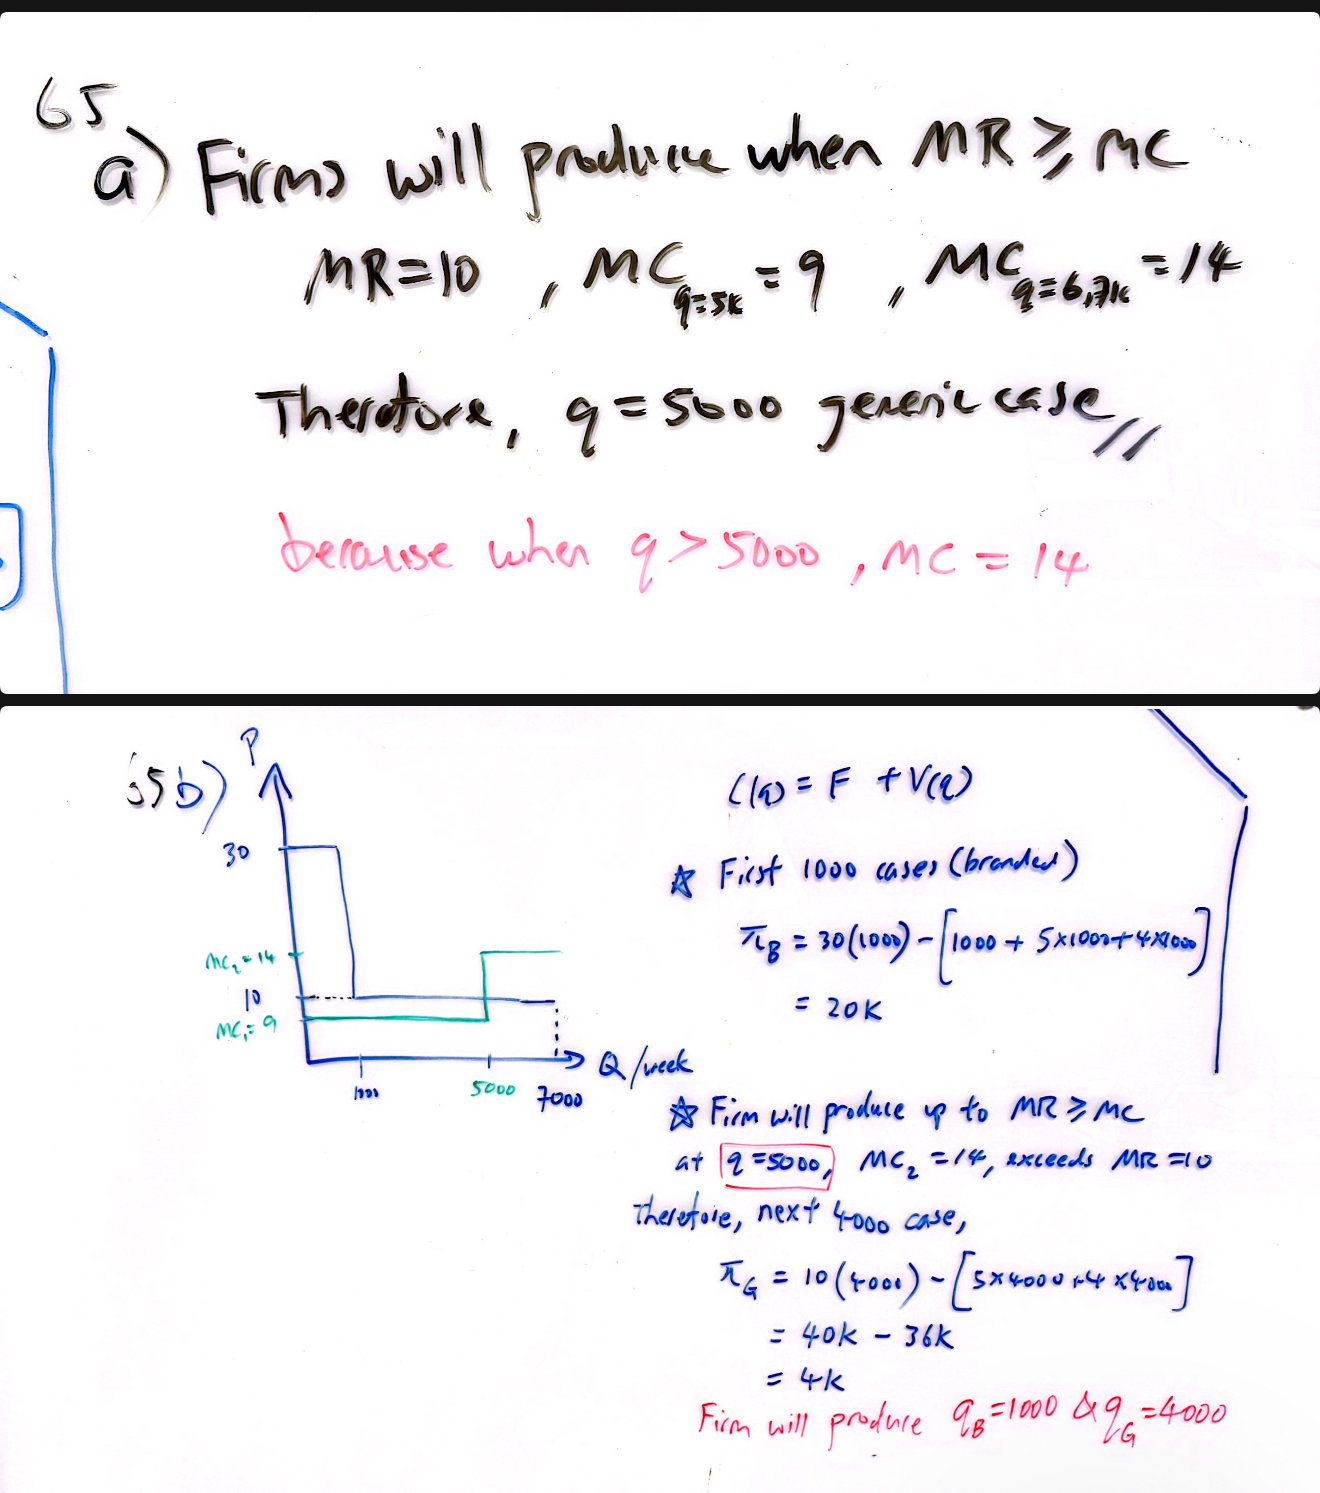 65
a) Firms will produce when MR ≥ MC
MR=10 , MC q=5k = 9 , MC q=6,7k = 14
Therefore, q = 5000 generic case //
because when q > 5000 , MC = 14
65 b)
P
30
MC₂ = 14
10
MC₁ = 9
1000
5000
7000
Q /week
C(q) = F + V(q)
☆ First 1000 cases (branded)
π_B = 30(1000) - [1000 + 5×1000 + 4×1000]
= 20K
☆ Firm will produce up to MR ≥ MC
at q = 5000, MC₂ = 14, exceeds MR = 10
Therefore, next 4000 case,
π_G = 10(4000) - [5×4000 + 4×4000]
= 40K - 36K
= 4K
Firm will produce q_B = 1000 & q_G = 4000